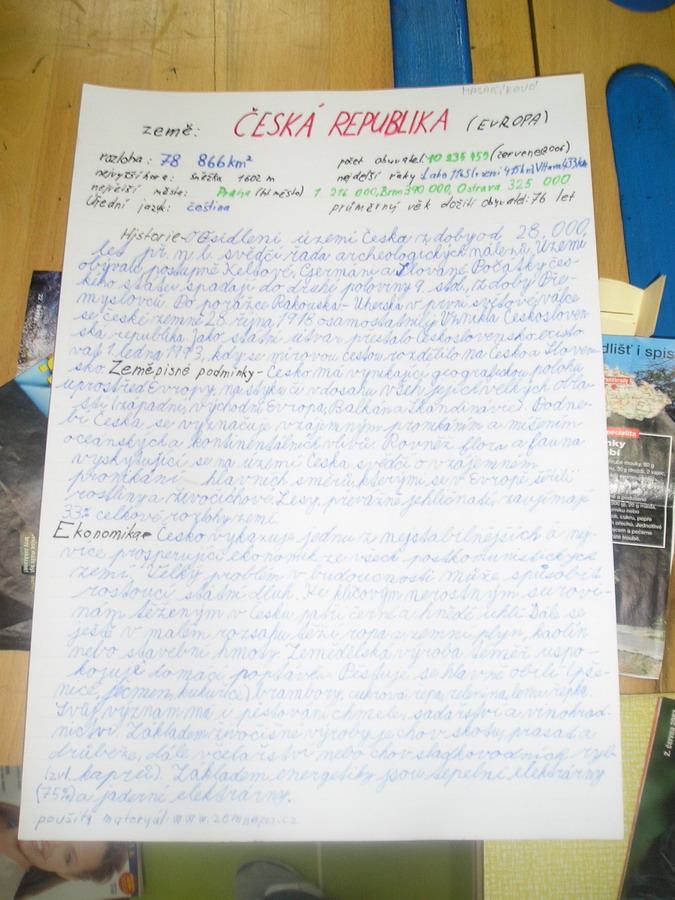 MAZÁKÍKOVÁ
země: ČESKÁ REPUBLIKA (EVROPA)
rozloha: 78 866km²
počet obyvatel: 10 235 455 (červenec 2006)
nejvyšší hora: Sněžka 1602 m
nejdelší řeky Labe 1165km Vltava 433km
největší města: Praha (hl. město) 1 216 000, Brno 390 000, Ostrava 325 000
Úřední jazyk: čeština
průměrný věk dožití obyvatel: 76 let
Historie- Osídlení území Česka z doby od 28.000,
let př. n. l. svědčí řada archeologických nálezů. Území
obývali postupně Keltové, Germáni a Slované. Počátky čes-
kého státu spadají do druhé poloviny 9. stol., z doby Pře-
myslovců. Po porážce Rakouska-Uherska v první světové válce
se české země 28. října 1918 osamostatnily. Vznikla Českosloven-
ská republika. Jako státní útvar přestalo Československo existo-
vat 1. ledna 1993, kdy se mírovou cestou rozdělilo na Česko a Sloven-
sko. Zeměpisné podmínky- Česko má vynikající geografickou polohu
uprostřed Evropy, na styku či v dosahu všech jejich velkých obla-
stí (západní, východní Evropa, Balkán a Skandinávie). Podne-
bí Česka se vyznačuje vzájemným pronikáním a míšením
oceánských a kontinentálních vlivů. Rovněž flora a fauna
vyskytující se na území Česka svědčí o vzájemném
pronikání hlavních směrů, kterými se v Evropě šířili
rostliny a živočichové. Lesy, převážně jehličnaté, zaujímají
33% celkové rozlohy zemí.
Ekonomika- Česko vykazuje jednu z nejstabilnějších a nej-
více prosperující ekonomik ze všech postkomunistických
zemí. Velký problém v budoucnosti může způsobit
rostoucí státní dluh. Ke klíčovým nerostným surovi-
nám těženým v Česku patří černé a hnědé uhlí. Dále se
ještě v malém rozsahu těží ropa a zemní plyn, kaolín
nebo stavební hmoty. Zemědělská výroba téměř uspo-
kojuje domácí poptávku. Pěstuje se hlavně obilí (pše-
nice, ječmen, kukuřice) brambory, cukrová řepa, zelenina, len a řepka.
Svůj význam má i pěstování chmele, sadařství a vinohrad-
nictví. Základem živočišné výroby je chov skotu, prasat a
drůbeže, dále včelařství nebo chov sladkovodních ryb
(zvl. kaprů). Základem energetiky jsou tepelné elektrárny
(75%) a jaderné elektrárny.
použitý materiál: www.zemepis.cz
dlišť i spis